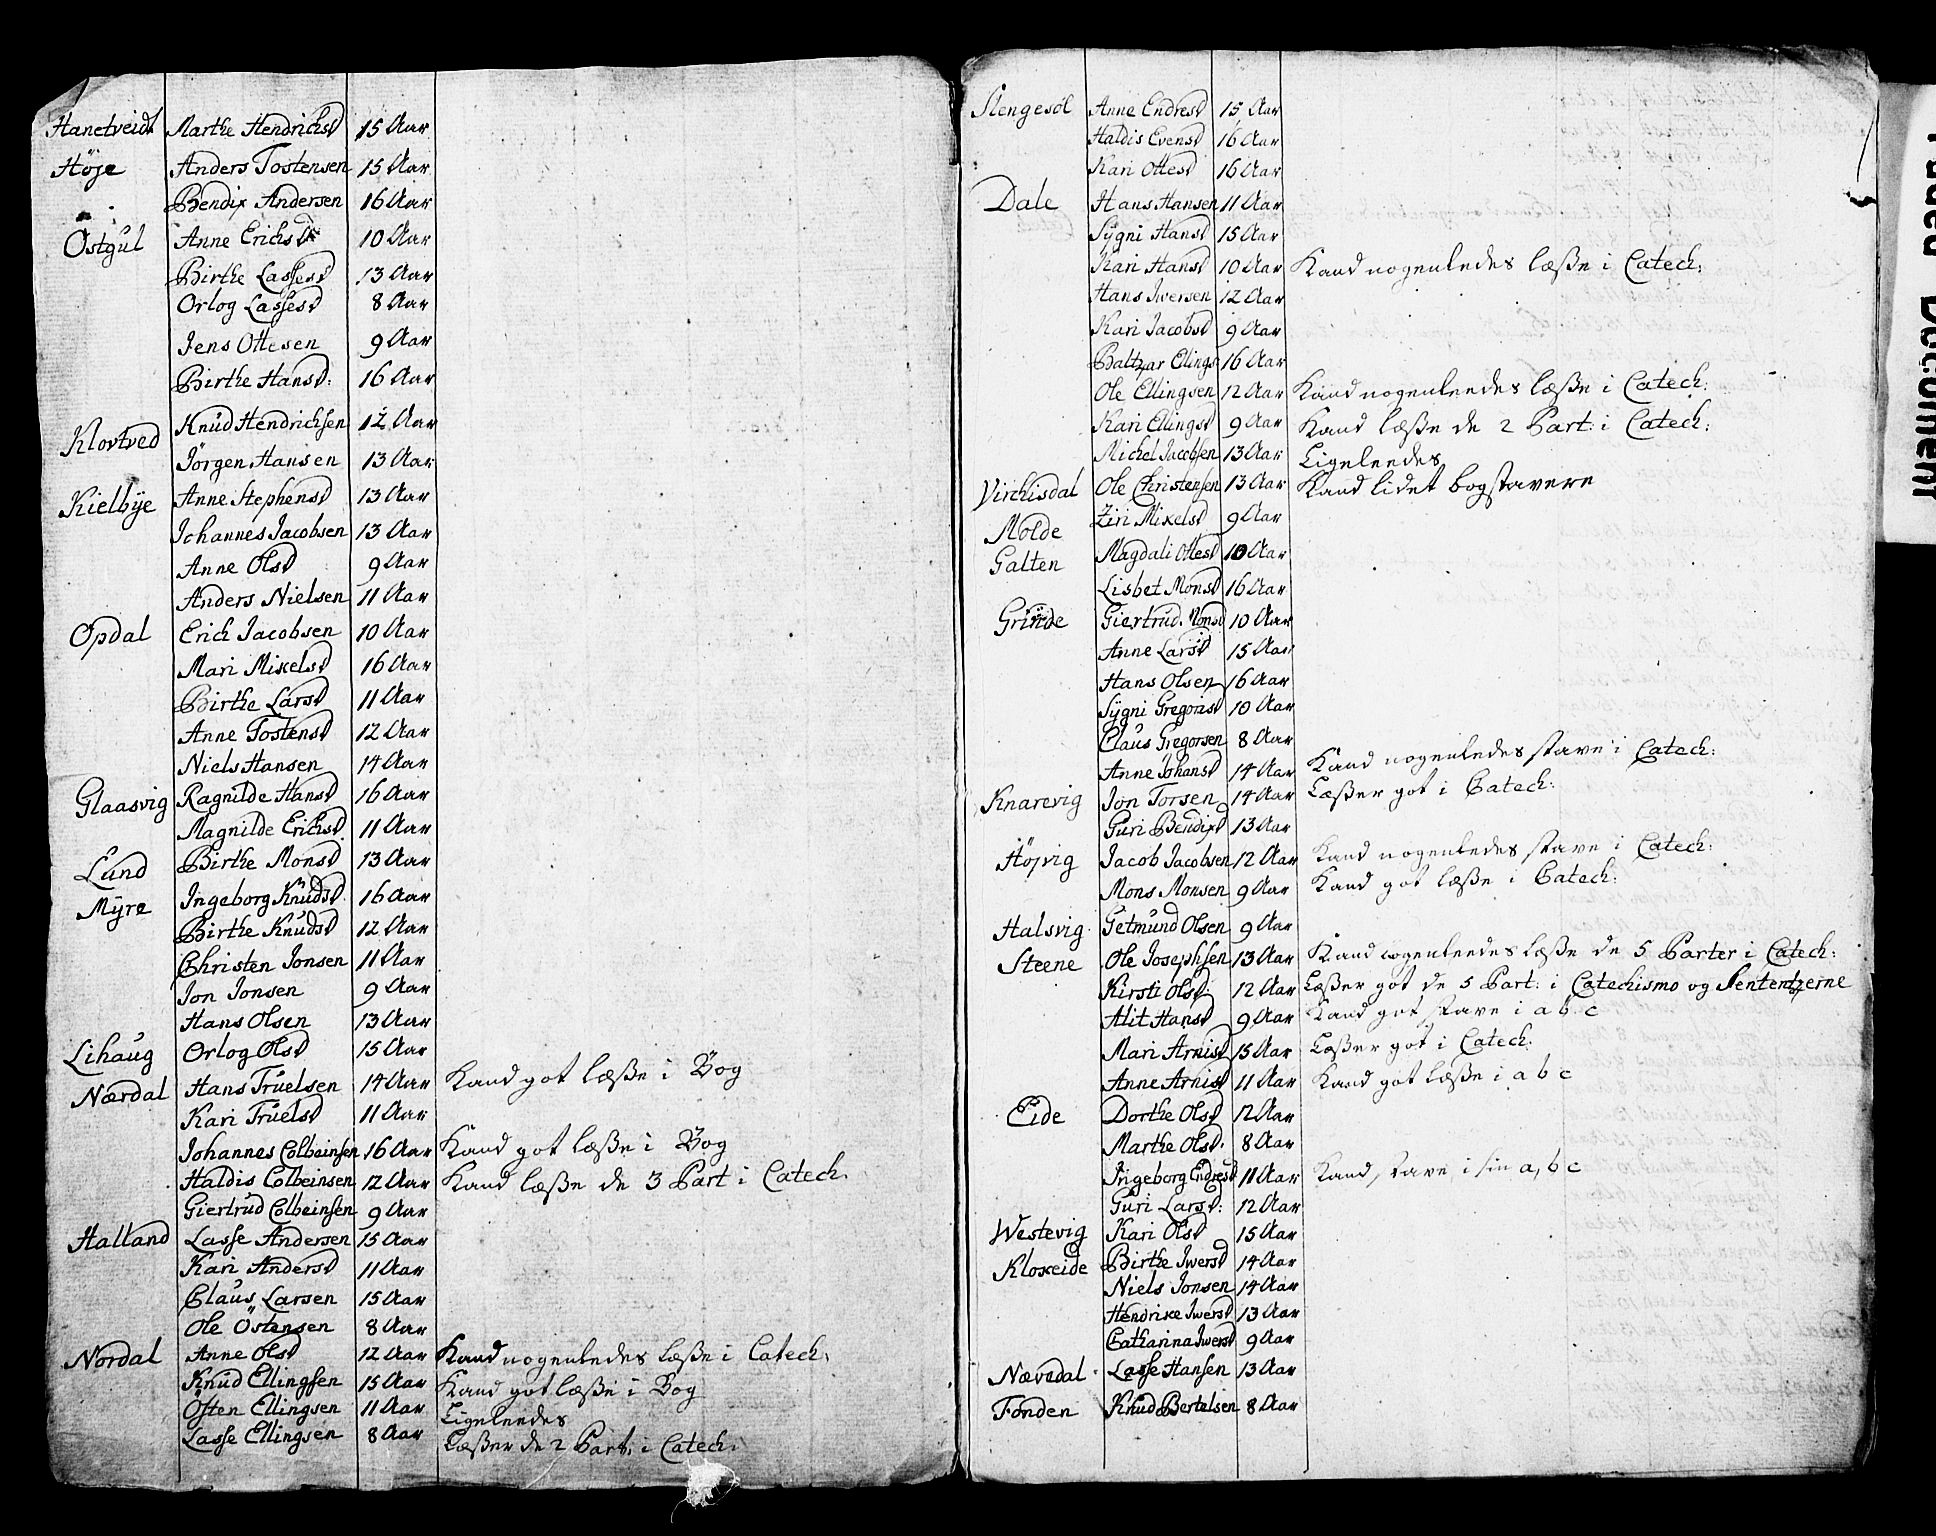 Hanetveidt Marthe Hendrichsd 15 Aar
Höje Anders Tostensen 15 Aar
Bendix Andersen 16 Aar
Östgul Anne Erichsd 10 Aar
Birthe Lassesd 13 Aar
Orlog Lassesd 8 Aar
Jens Ottesen 9 Aar
Birthe Hansd: 16 Aar
Klovtved Knud Hendrichsen 12 Aar
Jörgen Hansen 13 Aar
Kielbÿe Anne Stephensd 13 Aar
Johannes Jacobsen 13 Aar
Anne Olsd 9 Aar
Anders Nielsen 11 Aar
Opdal Erich Jacobsen 10 Aar
Mari Mikelsd 16 Aar
Birthe Larsd 11 Aar
Anne Tostensd 12 Aar
Niels Hansen 14 Aar
Glaasvig Ragnilde Hansd 16 Aar
Magnilde Erichsd 11 Aar
Lund Birthe Monsd 13 Aar
Mÿre Ingeborg Knudsd 16 Aar
Birthe Knudsd 12 Aar
Christen Jonsen 11 Aar
Jon Jonsen 9 Aar
Hans Olsen 13 Aar
Lihaug Orlog Olsd 15 Aar
Nærdal Hans Truelsen 14 Aar Kand got læsse i Bog
Kari Truelsd 11 Aar
Johannes Colbeinsen 16 Aar Kand got læsse i Bog
Haldis Colbeinsen 12 Aar Kand læsse de 3 Part i Catech.
Giertrud Colbeinsen 9 Aar
Halland Lasse Andersen 15 Aar
Kari Andersd 11 Aar
Claus Larsen 15 Aar
Ole Östensen 8 Aar
Nordal Anne Olsd 12 Aar Kand nogenledes læsse i Catech:
Knud Ellingsen 15 Aar Kand got læsse i Bog
Östen Ellingsen 11 Aar Ligeleedes
Lasse Ellingsen 8 Aar Læsser de 2 Part: i Catech:
Slengesöl Anne Endresd 15 Aar
Haldis Evensd 16 Aar
Kari Ottesd 16 Aar
Dale Hans Hansen 11 Aar
Sÿgni Hansd 15 Aar
Kari Hansd 10 Aar Kand nogenledes læsse i Catech:
Hans Iwersen 12 Aar
Kari Jacobsd 9 Aar
Baltzar Ellings 16 Aar
Ole Ellingsen 12 Aar Kand nogenleedes læsse i Catech:
Kari Ellingsd 9 Aar Kand læsse de 2 Part: i Catech:
Michel Jacobsen 13 Aar Ligeleedes
Virchisdal Ole Christensen 13 Aar Kand lidet bogstavere
Molde Ziri Mikelsd 9 Aar
Galten Magdali Ottesd 10 Aar
Lisbet Monsd 16 Aar
Grinde Giertrud Monsd 10 Aar
Anne Larsd 15 Aar
Hans Olsen 16 Aar
Sÿgni Gregorisd 10 Aar
Claus Gregorsen 8 Aar
Anne Johansd 14 Aar Kand nogenledes stave i Catech:
Knarevig Jon Torsen 14 Aar Læsser got i Catech:
Guri Bendixd 13 Aar
Höjvig Jacob Jacobsen 12 Aar Kand nogenledes stave i Catech:
Mons Monsen 9 Aar Kand got læsse i Catech:
Halsvig Getmund Olsen 9 Aar
Steene Ole Josephsen 13 Aar Kand nogenleedes læsse de 5 Parter i Catech:
Kirsti Olsd: 12 Aar Læsser got de 5 Part: i Catechismo og Sententzerne
Alit Hansd 9 Aar Kand got stave i a b c
Mari Arnisd 15 Aar Læsser got i Catech:
Anne Arnisd 11 Aar Kand got læsse i a b c
Eide Dorthe Olsd 12 Aar
Marthe Olsd: 8 Aar
Ingeborg Endresd 11 Aar Kand stave i sin a, b c
Guri Larsd: 12 Aar
Westevig Kari Olsd 15 Aar
Kloxeide Birthe Iwersd 14 Aar
Niels Jonsen 14 Aar
Hendrike Iwersd 13 Aar
Catharina Iwersd 9 Aar
Nævedal Lasse Hansen 13 Aar
Fonden Knud Bertelsen 8 Aar